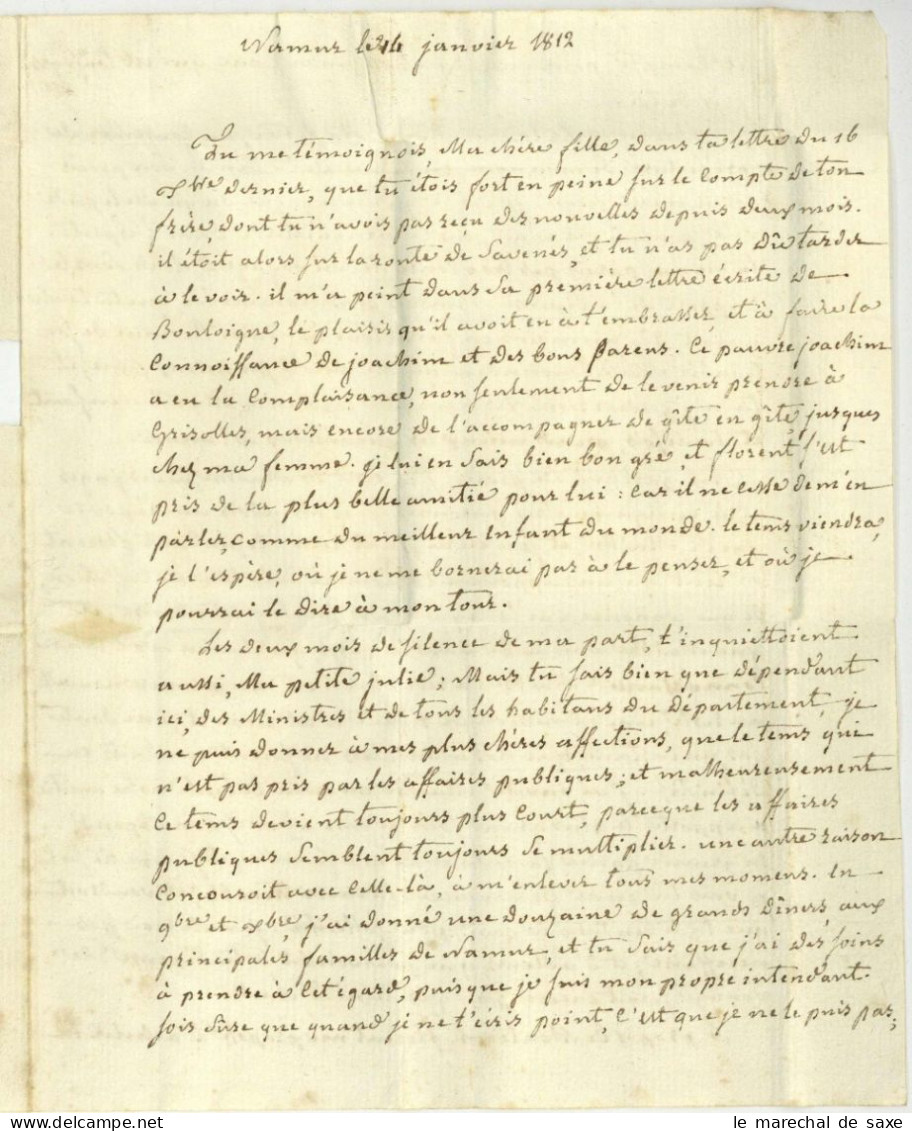 Namur le 14 janvier 1812
Tu me témoignois, Ma chère fille, dans ta lettre du 16
Xbre dernier, que tu étois fort en peine sur le compte de ton
frère, dont tu n'avois pas reçu des nouvelles depuis deux mois.
il étoit alors sur la route de Savenés, et tu n'as pas dû tarder
à le voir. il m'a peint dans sa première lettre écrite de
Bouloigne, le plaisir qu'il avoit eu à t'embrasser, et à faire la
connoissance de joachim et des bons parens. Ce pauvre joachim
a eu la complaisance, non seulement de le venir prendre à
Grisolles, mais encore de l'accompagner de gîte en gîte, jusques
chez ma femme. je lui en sais bien bon gré, et florent s'est
pris de la plus belle amitié pour lui : car il ne cesse de m'en
parler, comme du meilleur enfant du monde. le tems viendra,
je l'espère, où je ne me bornerai pas à le penser, et où je
pourrai le dire à mon tour.
Les deux mois de silence de ma part, t'inquiettoient
aussi, Ma petite julie ; Mais tu sais bien que dépendant
ici, des Ministres et de tous les habitans du département, je
ne puis donner à mes plus chères affections, que le tems qui
n'est pas pris par les affaires publiques ; et malheureusement
ce tems devient toujours plus court, parceque les affaires
publiques semblent toujours se multiplier. une autre raison
concouroit avec celle-là, à m'enlever tous mes momens. En
9bre et Xbre, j'ai donné une douzaine de grands dîners, aux
principales familles de Namur, et tu sais que j'ai des soins
à prendre à cet égard, puisque je suis mon propre intendant.
sois sure que quand je ne t'écris point, c'est que je ne le puis pas ;
le marechal de saxe